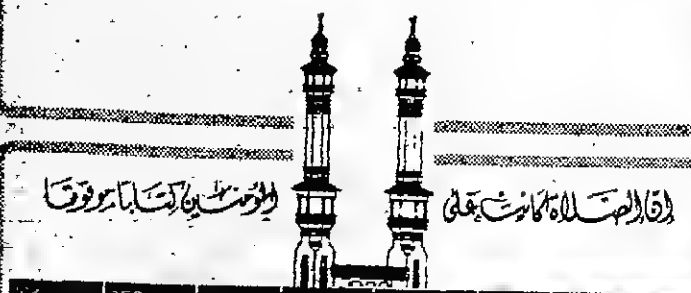 إن الصلاة كانت على المؤمنين كتابا موقوتا